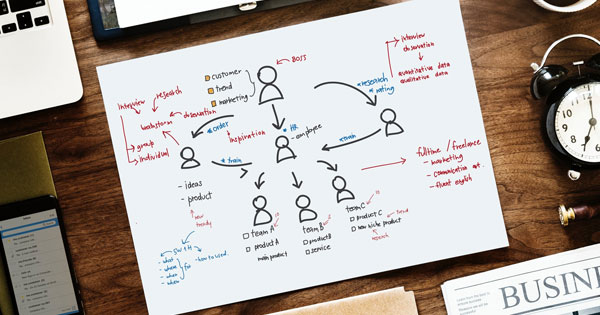 BOSS
customer
trend
marketing
interview
observation
quantitative data
qualitative data
research
rating
interview
research
brainstorm
observation
group
individual
order
inspiration
HR
- employee
train
train
- ideas
- product
new
trendy
fulltime / freelance
- marketing
- communication
- fluent english
team A
product A
main product
team B
product B
service
team C
product C
new niche product
trend
research
5W1H
- what
- where
- when
for
- how to used.
BUSINE
12